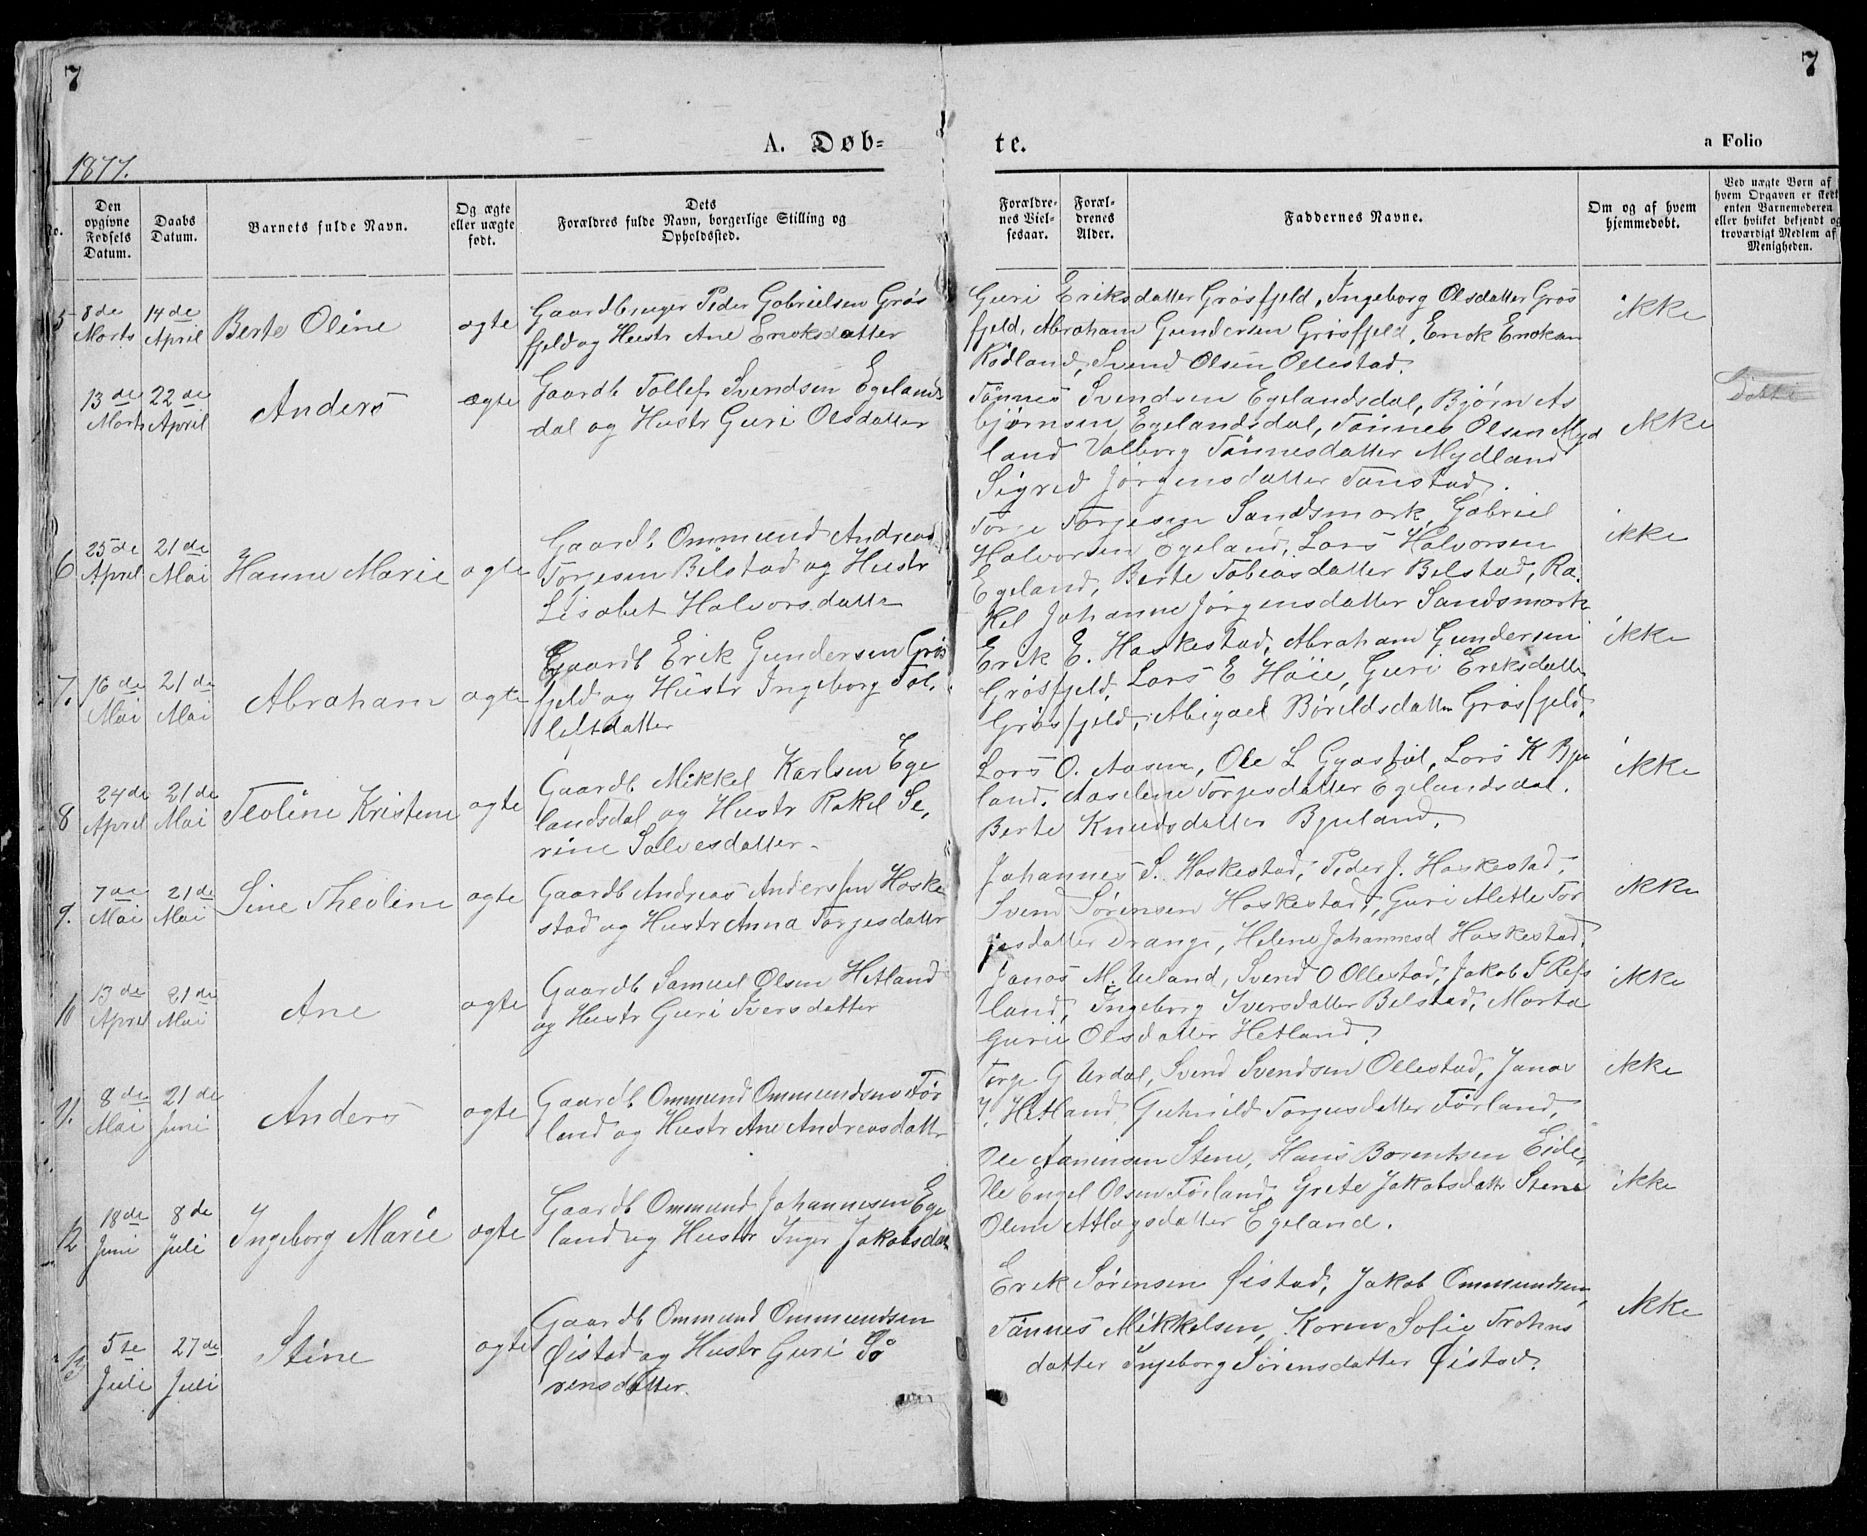 7
7
A. Døb-
te.
a Folio
1877.
No.
Den opgivne Fødsels Datum.
Daabs Datum.
Barnets fulde Navn.
Og ægte eller uægte født.
Dets Forældres fulde Navn, borgerlige Stilling og Opholdssted.
Forældrenes Vielsesaar.
Forældrenes Alder.
Faddernes Navne.
Om og af hvem hjemmedøbt.
Ved uægte Børn af hvem Opgaven er skeet enten Barnemoderen eller hvilket bekjendt og troværdigt Medlem af Menigheden.
5
8de Marts
14de April
Berte Oline
ægte
Gaardbruger Peder Gabrielsen Grøs
fjeld og Hustr Ane Eriksdatter
Guri Eriksdatter Grøsfjeld, Ingeborg Olsdatter Grøs
fjeld, Abraham Gundersen Grøsfjeld, Erick Ericksen
Rødland, Svend Olsen Ollestad.
ikke
13de Marts
22de April
Anders
ægte
Gaardb Tollef Svendsen Egelands
dal og Hustr Guri Olsdatter
Tønnes Svendsen Egelandsdal, Bjørn As
bjørnsen Egelandsdal, Tønnes Olsen Myd
land Valborg Tønnesdatter Mydland
Sigrid Jørgensdatter Tonstad.
ikke
6
25de April
21de Mai
Hanne Marie
ægte
Gaardb Ommund Andreas
Torjesen Bilstad og Hustr
Lisabet Halvorsdatte
Torje Torjesen Sandsmark, Gabriel
Halvorsen Egeland, Lars Halvorsen
Egeland, Berte Tobiasdatter Belstad, Ra
kel Johanne Jørgensdatter Sandsmark
ikke
7.
16de Mai
21de Mai
Abraham
ægte
Gaardb Erik Gundersen Grøs
fjeld og Hustr Ingeborg Tol
lefsdatter
Erik E. Haskestad, Abraham Gundersen
Grøsfjeld, Lars E Høie, Guri Eriksdatte
Grøsfjeld, Abigael Børildsdatter Grøsfjeld.
ikke
8
24de April
21de Mai
Teoline Kristene
ægte
Gaardb Mikkel Karlsen Ege
landsdal og Hustr Rakel Se
rine Salvesdatter
Lars O. Aasen, Ole L Gyasfal, Lars K Bju
land. Aaselene Torjesdatter Egelandsdal.
Berte Knudsdatter Bjuland.
ikke
9.
7de Mai
21de Mai
Sine Theoline
ægte
Gaardb Andreas Anderssen Haske
stad og Hustr Anna Torjesdattr
Johannes S. Haskestad, Peder J. Haskestad.
Svend Sørensen Haskestad, Guri Alette Tor
jesdatter Drange, Helene Johannesd Haskestad.
ikke
10
13de April
21de Mai
Ane
ægte
Gaardb Samuel Olsen Hetland
og Hustr Guri Iversdatter
Janas M. Ueland, Svend O Ollestad, Jakob T Refs
land, Ingeborg Iversdatter Belstad, Marta
Gurie Olsdatter Hetland.
ikke
11.
8de Mai
21de Juni
Anders
ægte
Gaardb Ommund Ommundsen Før
land og Hustr Ane Andreasdattr
Torje G Urdal, Svend Svendsen Ollestad, Janas
J. Hetland Guhnild Torjusdatter Førland,
ikke
12
18de Juni
8de Juli
Ingeborg Marie
ægte
Gaardb Ommund Johannesen Ege
land og Hustr Inger Jakobsdat
Ole Aanensen Stene, Hans Borentsen Eide,
Ole Engel Olsen Førland, Grete Jakobsdattr Stene
Oline Atlagsdatter Egeland.
ikke
13
5te Juli
27de Juli
Stine
ægte
Gaardb Ommund Ommundsen
Øistad og Hustr Guri Sø
rensdatter.
Erik Sørensen Øistad, Jakob Ommundsen,
Tønnes Mikkelsen, Karen Sofie Trohns
datter Ingeborg Sørensdatter Øistad.
ikke